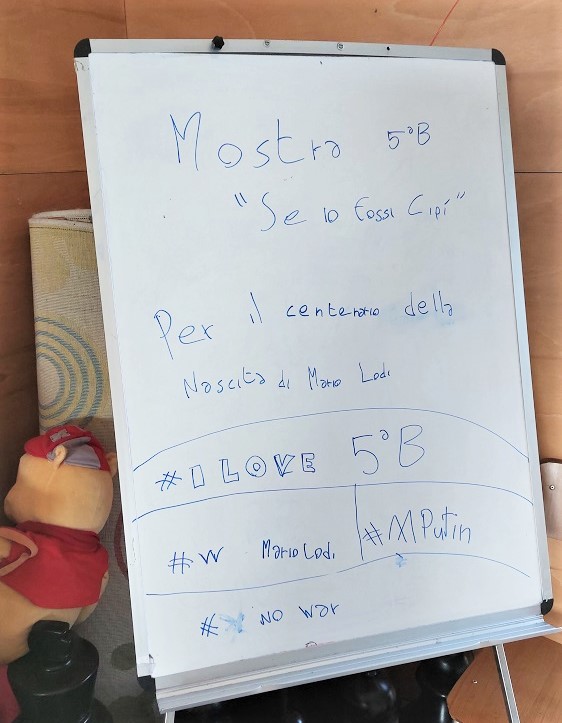 Mostra 5ªB
"Se io fossi Cipì"
Per il centenario della
Nascita di Mario Lodi
#I LOVE 5ªB
#W Mario Lodi #M Putin
# NO war